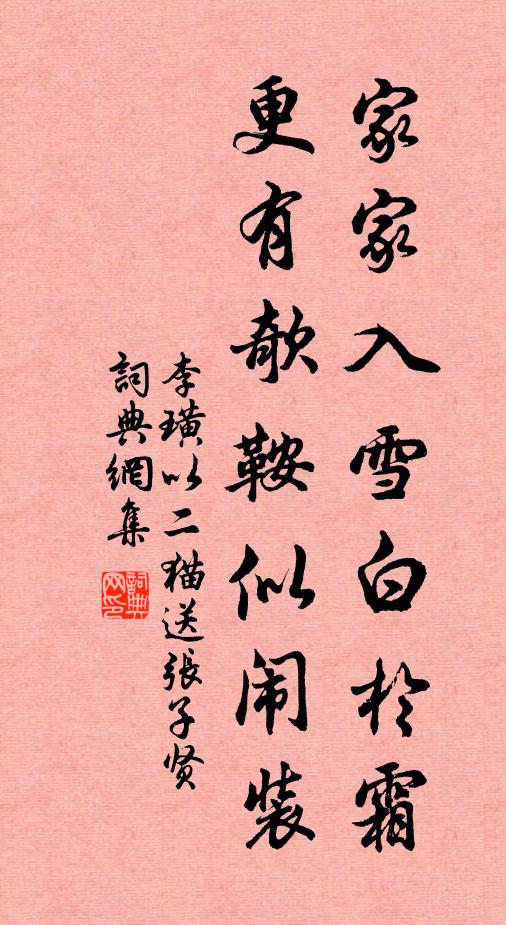 家家入雪白於霜
更有欹鞍似闹装
李璜以二猫送張子贤
詞典網集
詞典网印